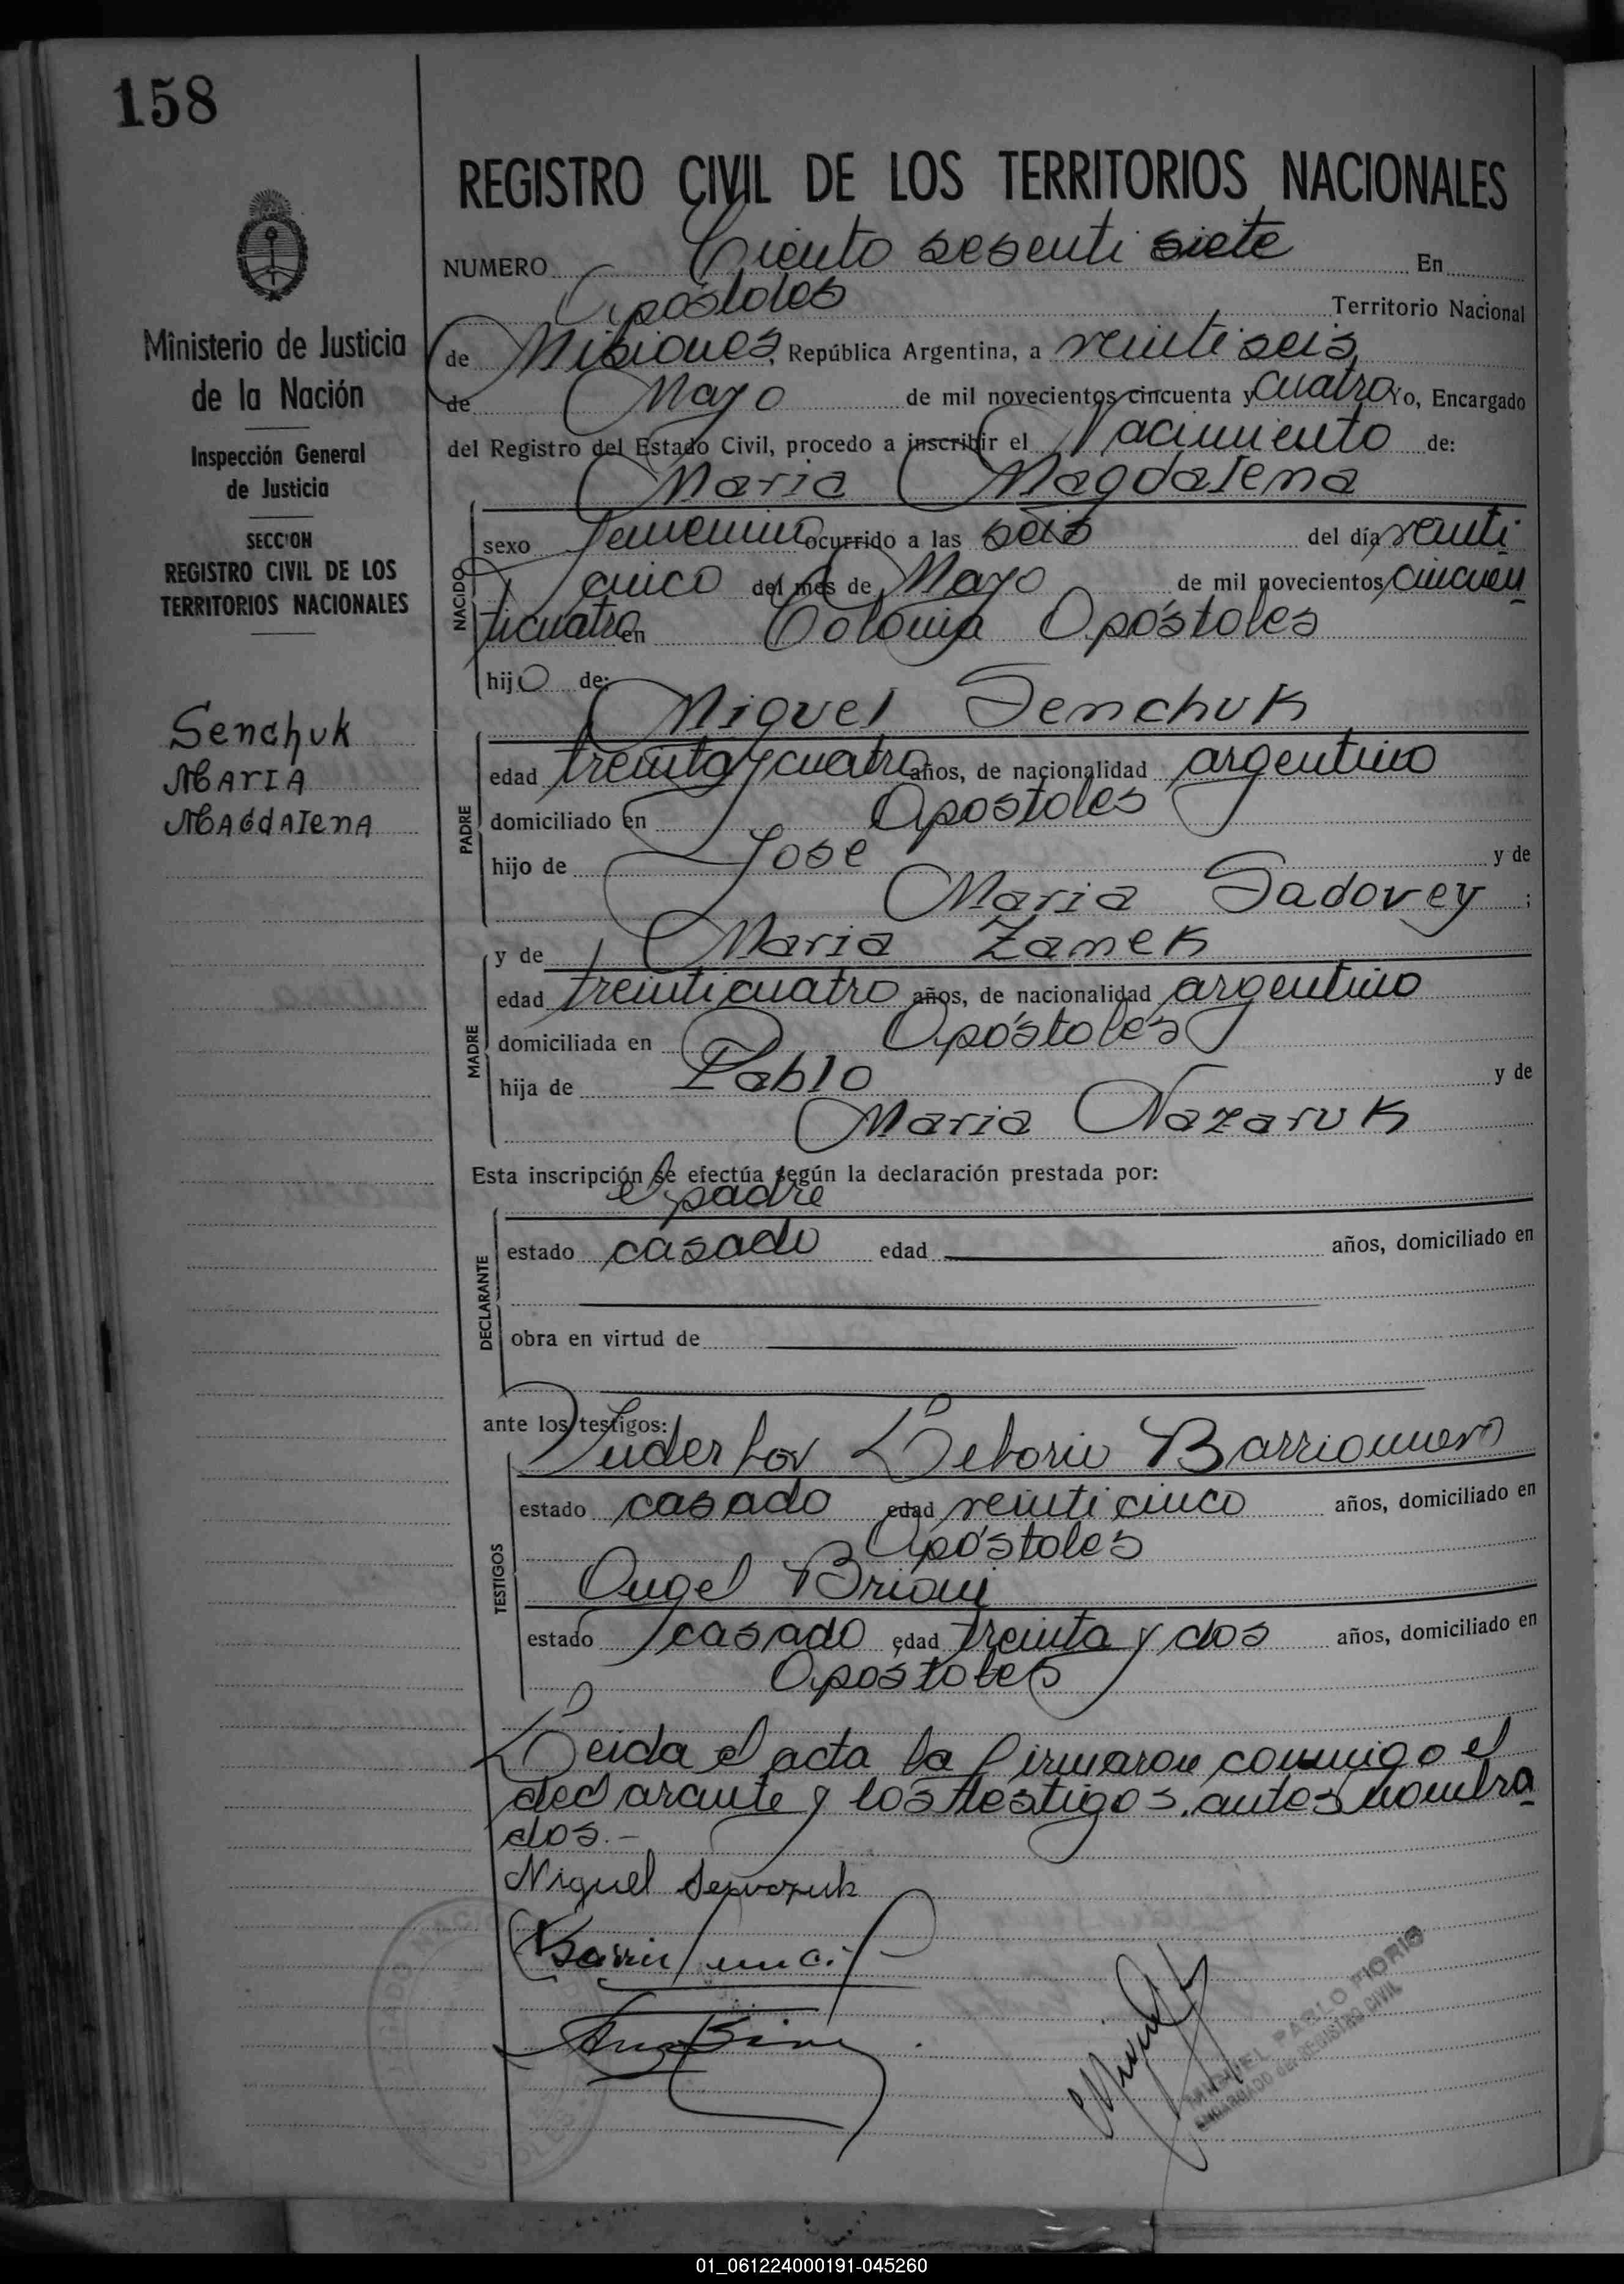 158
REGISTRO CIVIL DE LOS TERRITORIOS NACIONALES
NUMERO Ciento sesenti siete En
Apóstoles Territorio Nacional
de Misiones, República Argentina, a veinti seis
de Mayo de mil novecientos cincuenta y cuatro Yo, Encargado
del Registro del Estado Civil, procedo a inscribir el Nacimiento de:
Maria Magdalena
NACIDO
sexo femenino ocurrido a las seis del día veinti
cinco del mes de Mayo de mil novecientos cincuen
ticuatro en Colonia Apóstoles
hijo de:
Miguel Senchuk
PADRE
edad treinta y cuatro años, de nacionalidad argentino
domiciliado en Apostoles
hijo de Jose y de
Maria Sadovey ;
y de Maria Zamek
MADRE
edad treinticuatro años, de nacionalidad argentino
domiciliada en Apóstoles
hija de Pablo y de
Maria Nazaruk
Esta inscripción se efectúa según la declaración prestada por:
el padre
DECLARANTE
estado casado edad años, domiciliado en
obra en virtud de
ante los testigos:
Liborio Barrionuevo
TESTIGOS
estado casado edad veinticinco años, domiciliado en
Apóstoles
Angel Brioni
estado casado edad treinta y dos años, domiciliado en
Apóstoles
Leida el acta la firmaron conmigo el
declarante y los testigos antes nombra
dos.-
Miguel
MIGUEL PABLO FIORIO
ENCARGADO del REGISTRO CIVIL
Ministerio de Justicia
de la Nación
Inspección General
de Justicia
SECCION
REGISTRO CIVIL DE LOS
TERRITORIOS NACIONALES
Senchuk
MARIA
MAGdAlenA
01_061224000191-045260